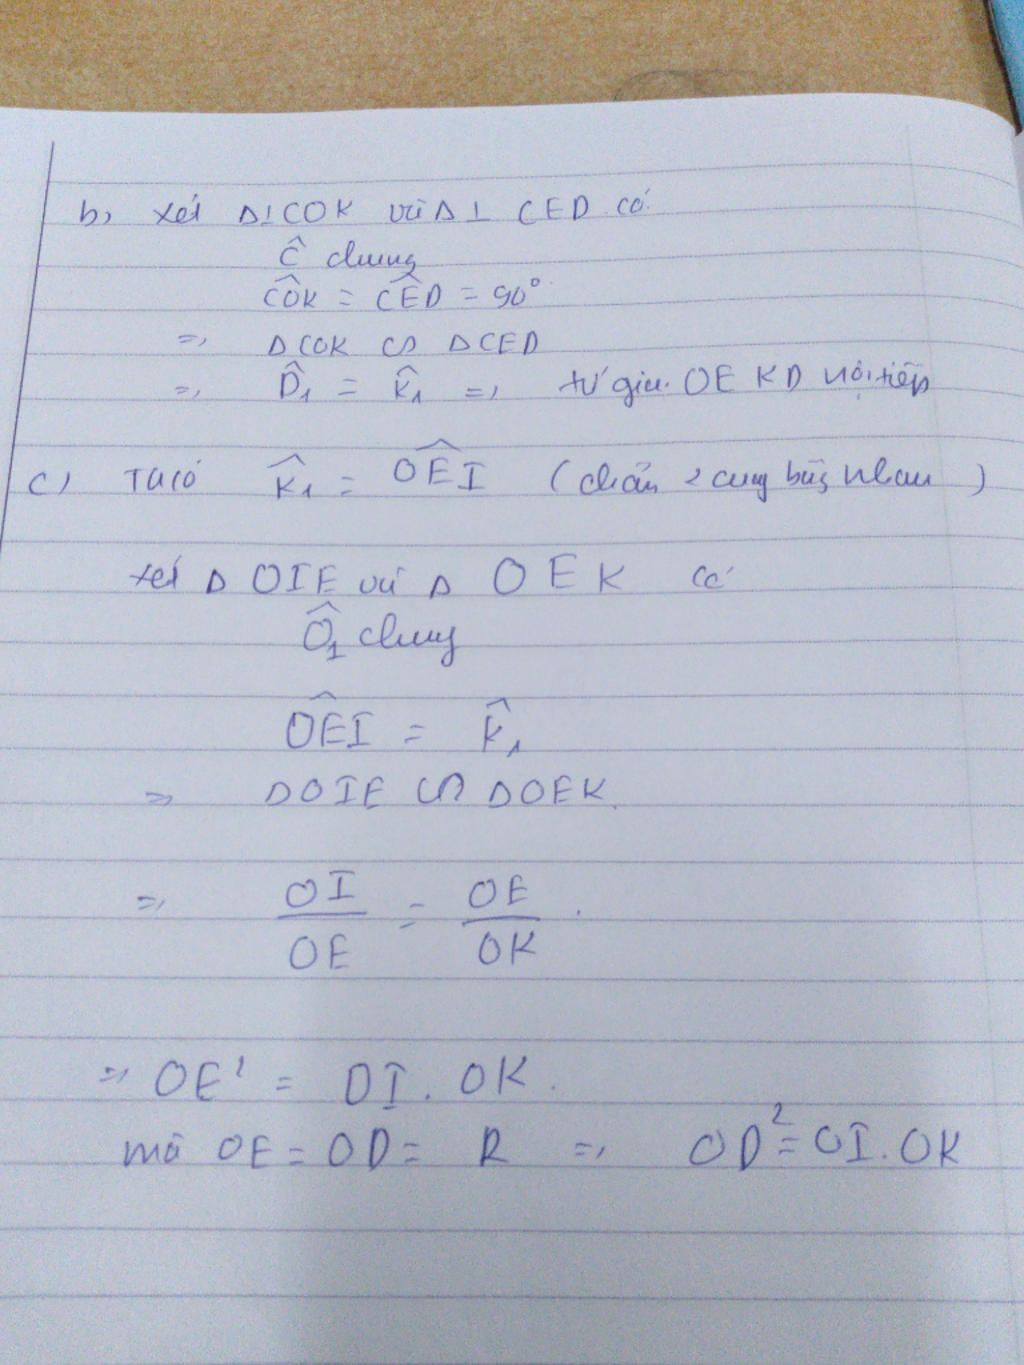 b, xét Δ⊥COK và Δ⊥ CED có:
Ĉ chung
CÔK = CÊD = 90°
=> ΔCOK ᔕ ΔCED
=> D̂₁ = K̂₁ => tứ giác OEKD nội tiếp
c) Ta có K̂₁ = OÊI (chắn 2 cung bằng nhau)
xét Δ OIE và Δ OEK có
Ô₁ chung
OÊI = K̂₁
=> ΔOIE ᔕ ΔOEK.
=> OI/OE = OE/OK.
=> OE² = OI. OK.
mà OE = OD = R => OD² = OI. OK